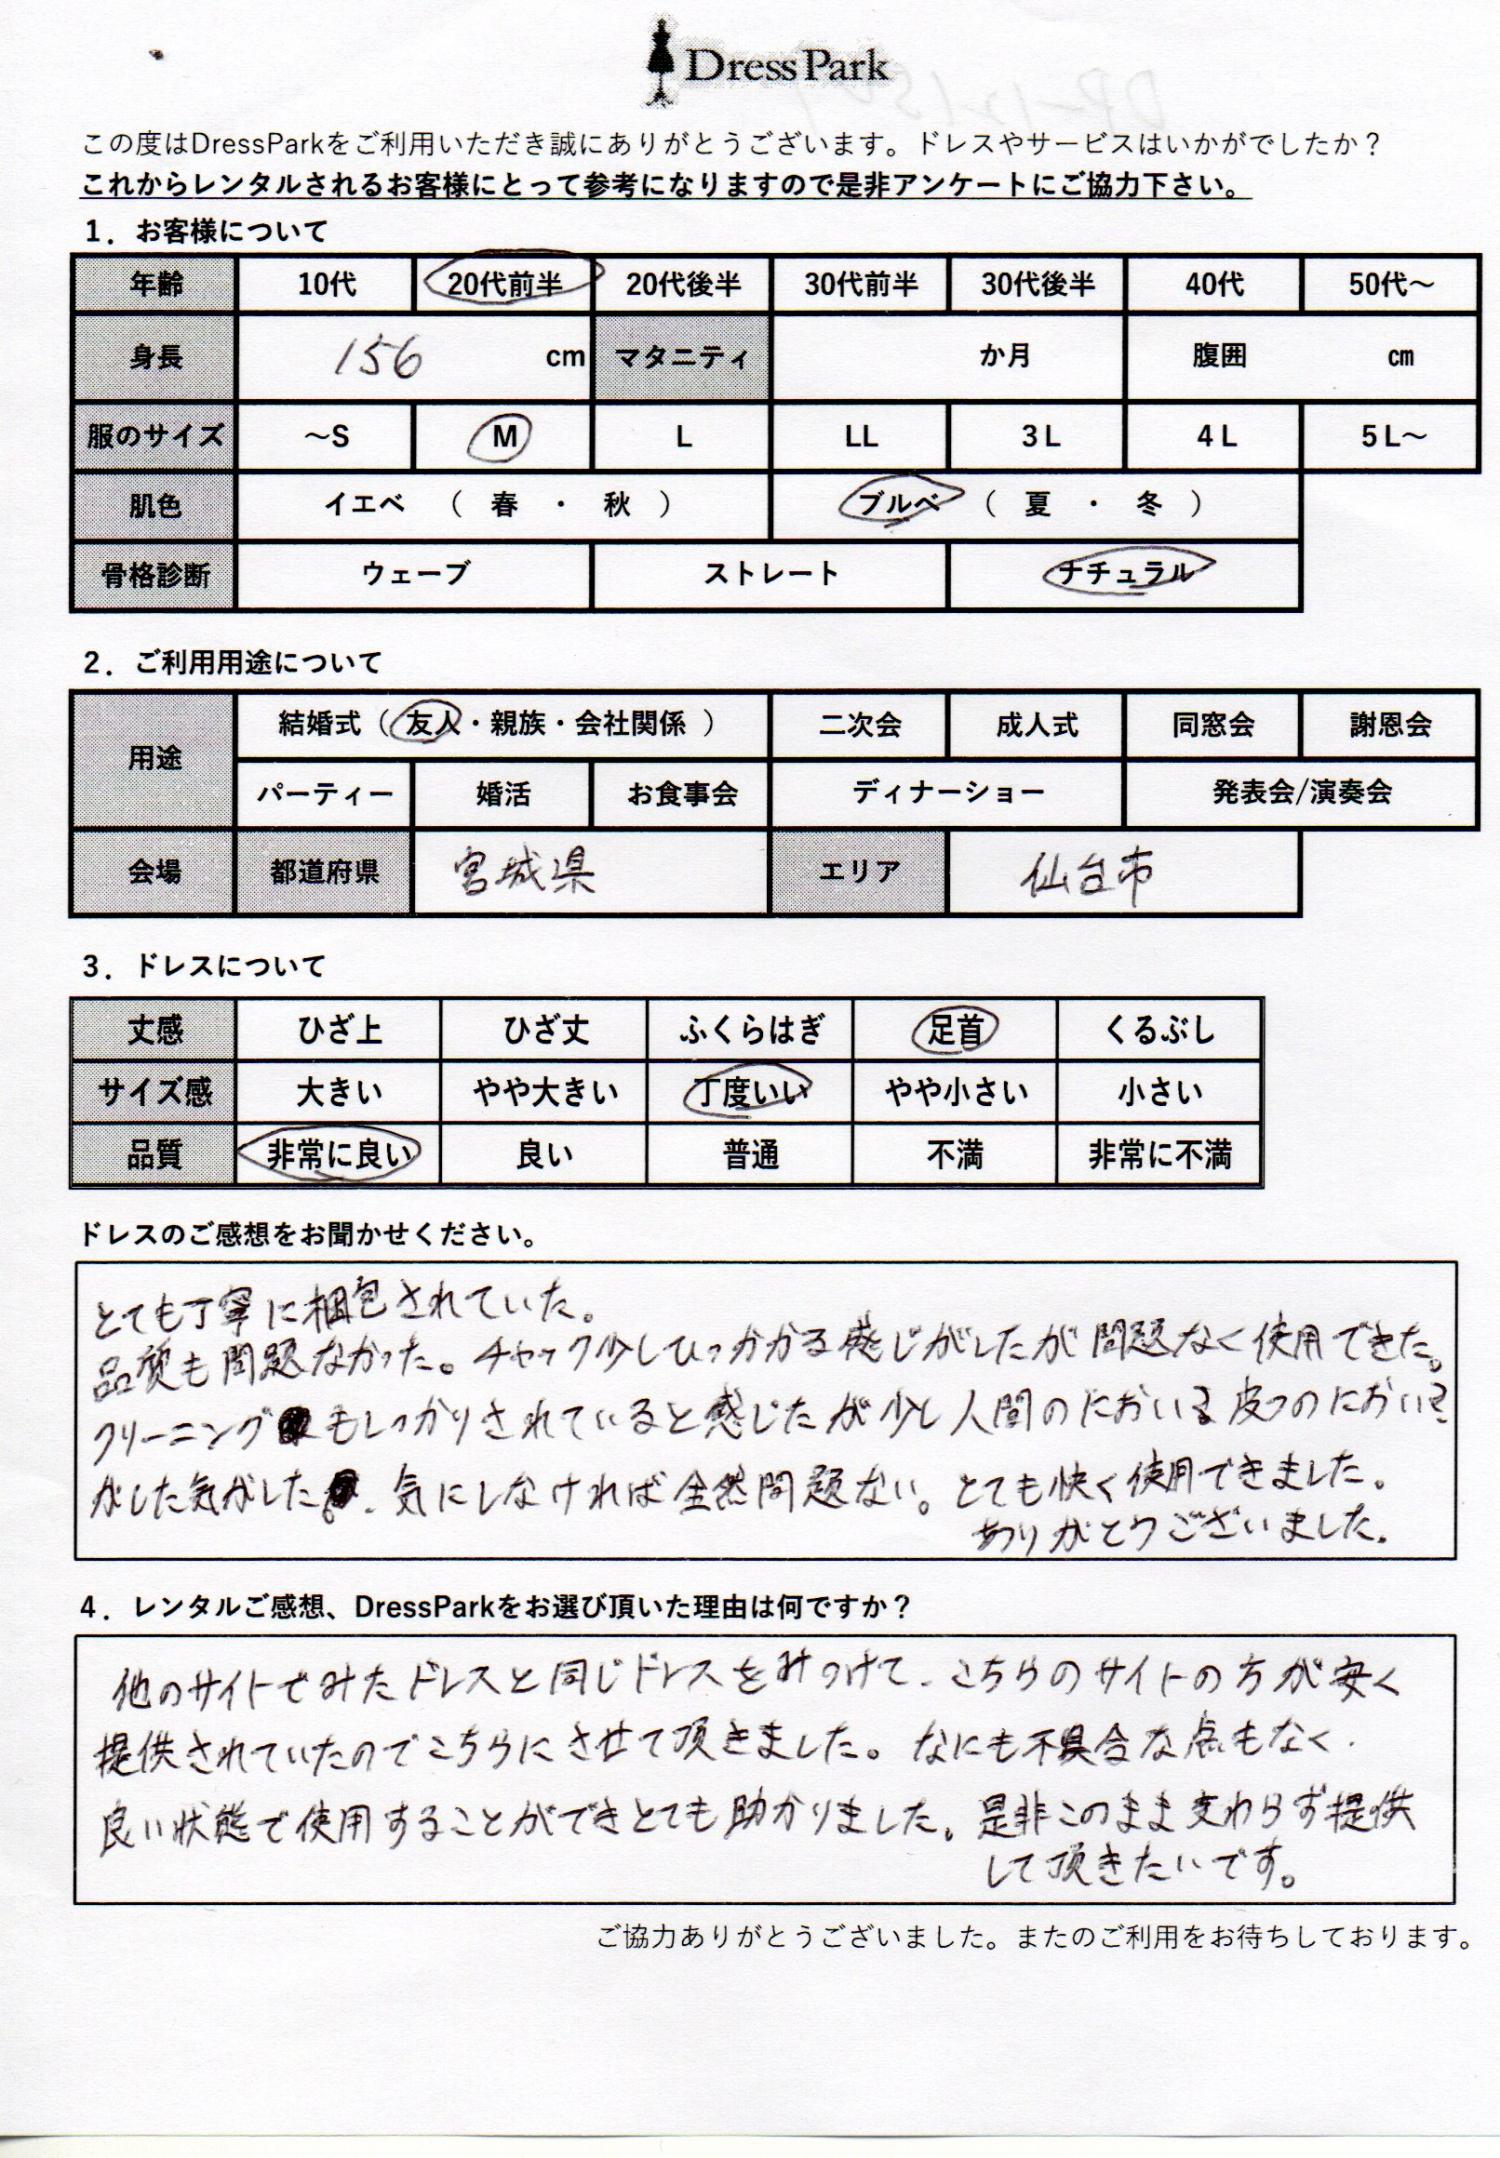 DressPark
この度はDressParkをご利用いただき誠にありがとうございます。ドレスやサービスはいかがでしたか？
これからレンタルされるお客様にとって参考になりますので是非アンケートにご協力下さい。
1．お客様について
年齢 10代 20代前半 20代後半 30代前半 30代後半 40代 50代～
身長 156 cm マタニティ か月 腹囲 ㎝
服のサイズ ～S M L LL 3L 4L 5L～
肌色 イエベ （ 春 ・ 秋 ） ブルベ （ 夏 ・ 冬 ）
骨格診断 ウェーブ ストレート ナチュラル
2．ご利用用途について
用途 結婚式（ 友人・親族・会社関係 ） 二次会 成人式 同窓会 謝恩会
パーティー 婚活 お食事会 ディナーショー 発表会/演奏会
会場 都道府県 宮城県 エリア 仙台市
3．ドレスについて
丈感 ひざ上 ひざ丈 ふくらはぎ 足首 くるぶし
サイズ感 大きい やや大きい 丁度いい やや小さい 小さい
品質 非常に良い 良い 普通 不満 非常に不満
ドレスのご感想をお聞かせください。
とても丁寧に梱包されていた。
品質も問題なかった。チャック少しひっかかる感じがしたが問題なく使用できた。
クリーニングもしっかりされていると感じたが少し人間のにおい？皮フのにおい？
がした気がした。気にしなければ全然問題ない。とても快く使用できました。
ありがとうございました。
4．レンタルご感想、DressParkをお選び頂いた理由は何ですか？
他のサイトでみたドレスと同じドレスをみつけて、こちらのサイトの方が安く
提供されていたのでこちらにさせて頂きました。なにも不具合な点もなく、
良い状態で使用することができとても助かりました。是非このまま変わらず提供
して頂きたいです。
ご協力ありがとうございました。またのご利用をお待ちしております。